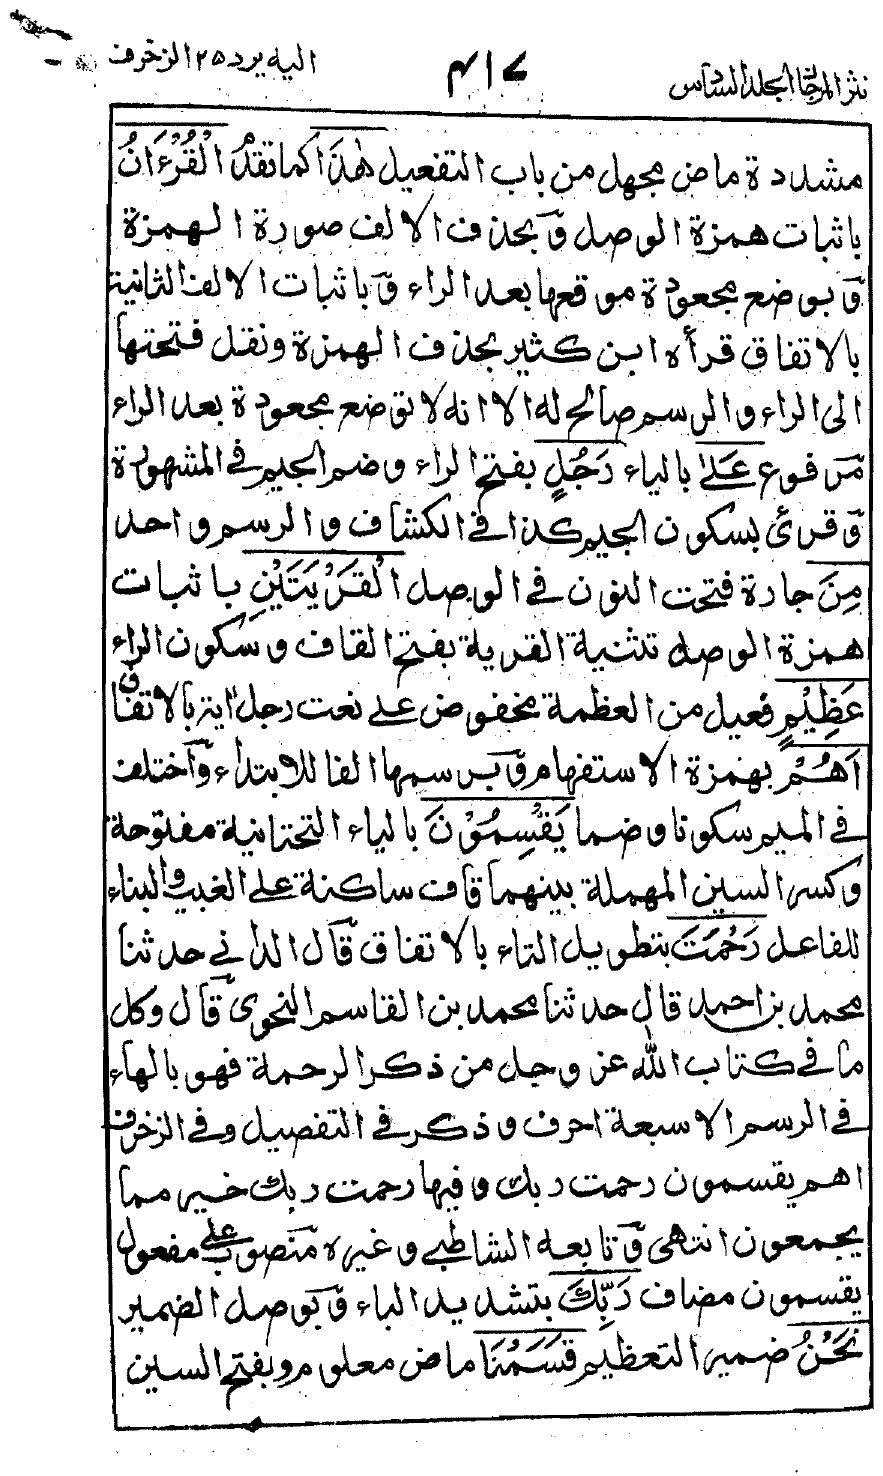 نثر المرجان الجلد السادس ٤١٧ اليه يرد ٢٥ الزخرف
مشددة ماض مجهل من باب التفعيل هٰذَا كما تقدم الْقُرْءَانُ
باثبات همزة الوصل وبحذف الالف صورة الهمزة
وبوضع مجعودة موقعها بعد الراء وباثبات الالف الثانية
بالاتفاق قرأه ابن كثير بحذف الهمزة ونقل فتحتها
الى الراء والرسم صالح له الا انه لا توضع مجعودة بعد الراء
مرفوع عَلىٰ بالياء رَجُلٍ بفتح الراء وضم الجيم في المشهورة
وقرئ بسكون الجيم كذا في الكشاف والرسم واحد
مِنَ جارة فتحت النون في الوصل الْقَرْيَتَيْنِ باثبات
همزة الوصل تثنية القرية بفتح القاف وسكون الراء
عَظِيْمٍ فعيل من العظمة مخفوض على نعت رجل اية بالاتفاق
اَهُمْ بهمزة الاستفهام وبرسمها الفا للابتداء واختلف
في الميم سكونا وضما يَقْسِمُوْنَ بالياء التحتانية مفتوحة
وكسر السين المهملة بينهما قاف ساكنة على الغيب والبناء
للفاعل رَحْمَتَ بتطويل التاء بالاتفاق قال الداني حدثنا
محمد بن احمد قال حدثنا محمد بن القاسم النحوى قال وكل
ما في كتاب الله عز وجل من ذكر الرحمة فهو بالهاء
في الرسم الا سبعة احرف وذكر في التفصيل وفي الزخرف
اهم يقسمون رحمت ربك وفيها رحمت ربك خير مما
يجمعون انتهى وتابعه الشاطبي وغيره منصوب على مفعول
يقسمون مضاف رَبِّكَ بتشديد الباء وبوصل الضمير
نَحْنُ ضمير التعظيم قَسَمْنَا ماض معلوم وبفتح السين